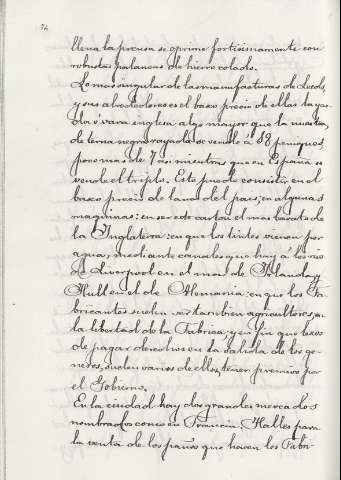 74
llena la prensa se oprime fortisimamente con
robustas palancas de hierro colado.
Lo mas singular de las manufacturas de Leeds,
y sus alrededores es el baxo precio de ellas: la yar-
da ó vara inglesa algo mayor que la nuestra,
de terna negro rayado se vende á 18 peniques
poco mas de 7 as mientras que en España se
vende el triplo. Este puede consistir en el
baxo precio de lanas del pais; en algunas
maquinas: en ser este carbon el mas barato de
la Inglaterra: en que los tintes vienen por
agua, mediante canales que hay á los rios
de Liverpool en el mar de Irlanda, y
Hull en el de Alemania: en que los Fa-
bricantes suelen ser tambien agricultores; en
la libertad de la Fabrica; y en fin que lexos
de pagar derechos en la salida de los ge-
neros, suelen varios de ellos, tener premios por
el Gobierno.
En la ciudad hay dos grandes mercados
nombrados como en Francia: Halles para
la venta de los paños que hacen los Fabri-